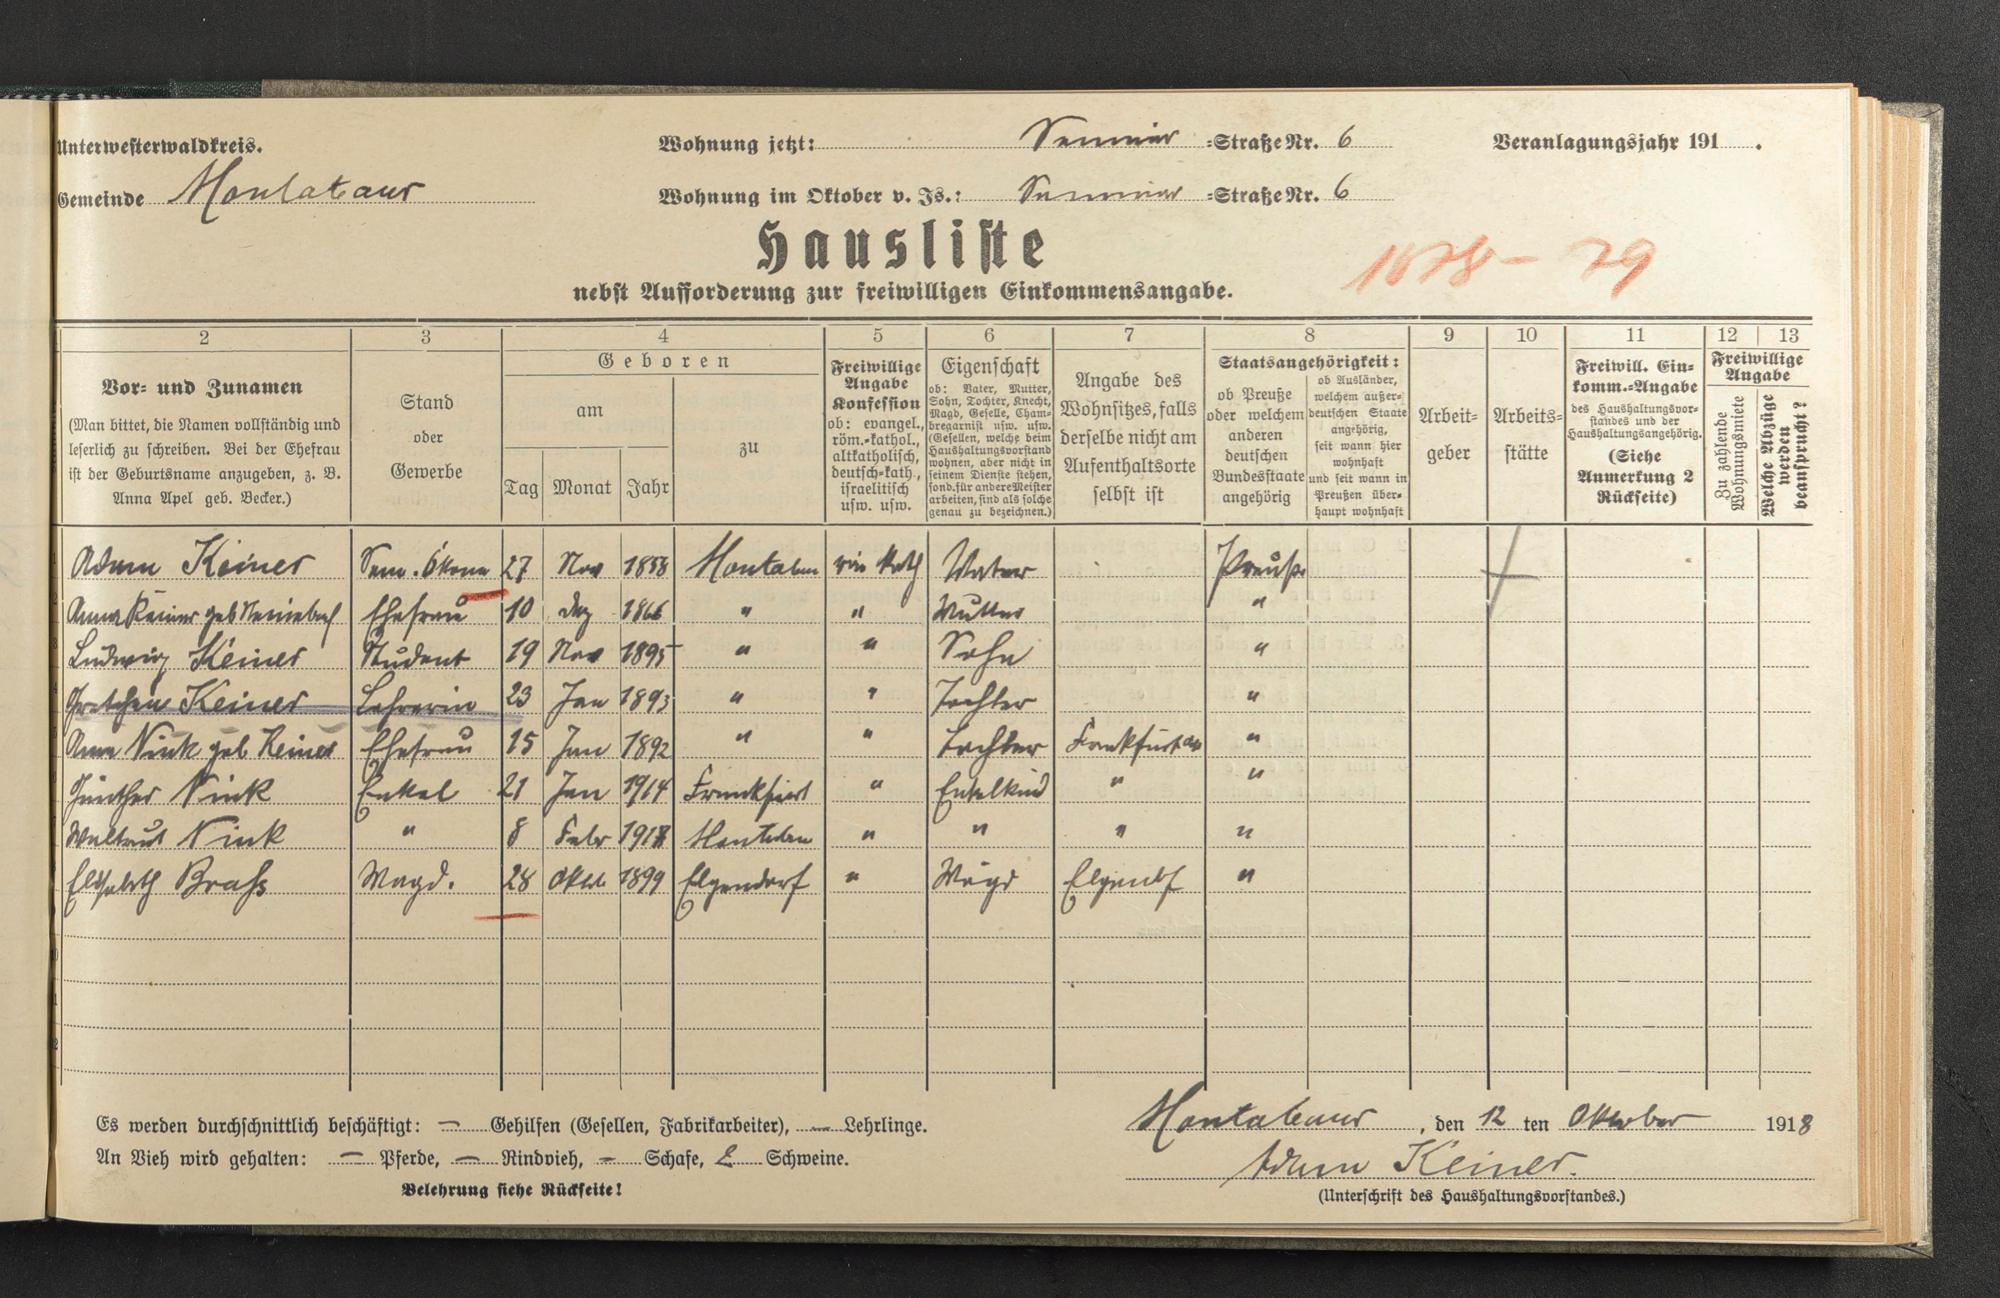 Unterwesterwaldkreis.
Wohnung jetzt: Seminar =Straße Nr. 6
Veranlagungsjahr 191 .
Gemeinde Montabaur
Wohnung im Oktober v. Js.: Seminar =Straße Nr. 6
Hausliste
nebst Aufforderung zur freiwilligen Einkommensangabe.
2 3 4 5 6 7 8 9 10 11 12 13
Vor= und Zunamen
(Man bittet, die Namen vollständig und
leserlich zu schreiben. Bei der Ehefrau
ist der Geburtsname anzugeben, z. B.
Anna Apel geb. Becker.)
Stand
oder
Gewerbe
Geboren
am
Tag Monat Jahr
zu
Freiwillige
Angabe
Konfession
ob: evangel.,
röm.=kathol.,
altkatholisch,
deutsch=kath.,
israelitisch
usw. usw.
Eigenschaft
ob: Vater, Mutter,
Sohn, Tochter, Knecht,
Magd, Geselle, Cham=
bregarnist usw. usw.
(Gesellen, welche beim
Haushaltungsvorstand
wohnen, aber nicht in
seinem Dienste stehen,
sond. für andere Meister
arbeiten, sind als solche
genau zu bezeichnen.)
Angabe des
Wohnsitzes, falls
derselbe nicht am
Aufenthaltsorte
selbst ist
Staatsangehörigkeit:
ob Preuße
oder welchem
anderen
deutschen
Bundesstaate
angehörig
ob Ausländer,
welchem außer=
deutschen Staate
angehörig,
seit wann hier
wohnhaft
und seit wann in
Preußen über=
haupt wohnhaft
Arbeit=
geber
Arbeits=
stätte
Freiwill. Ein=
komm.=Angabe
des Haushaltungsvor=
standes und der
Haushaltungsangehörig.
(Siehe
Anmerkung 2
Rückseite)
Freiwillige
Angabe
Zu zahlende
Wohnungsmiete
Welche Abzüge
werden
beansprucht?
Adam Keiner Sem. Ökonom 27 Nov Montabaur röm Kath Vater Preuße
Anna Keiner geb Ehefrau 10 Dez 1866 " " Mutter "
Ludwig Keiner Student 19 Nov 1895 " " Sohn "
Gretchen Keiner Lehrerin 23 Jan 1893 " " Tochter "
Anna Nink geb Keiner Ehefrau 15 Jan 1892 " " Tochter Frankfurt a/M "
Günther Nink Enkel 21 Jan 1914 Frankfurt " Enkelkind " "
Waltrud Nink " 8 Febr Montabaur " " " "
Elisabeth Braß Magd. 28 Okto 1899 Elgendorf " Magd Elgendf "
Es werden durchschnittlich beschäftigt: — Gehilfen (Gesellen, Fabrikarbeiter), — Lehrlinge.
An Vieh wird gehalten: — Pferde, — Rindvieh, — Schafe, 2 Schweine.
Belehrung siehe Rückseite!
Montabaur, den 12 ten Oktober 1918
Adam Keiner.
(Unterschrift des Haushaltungsvorstandes.)